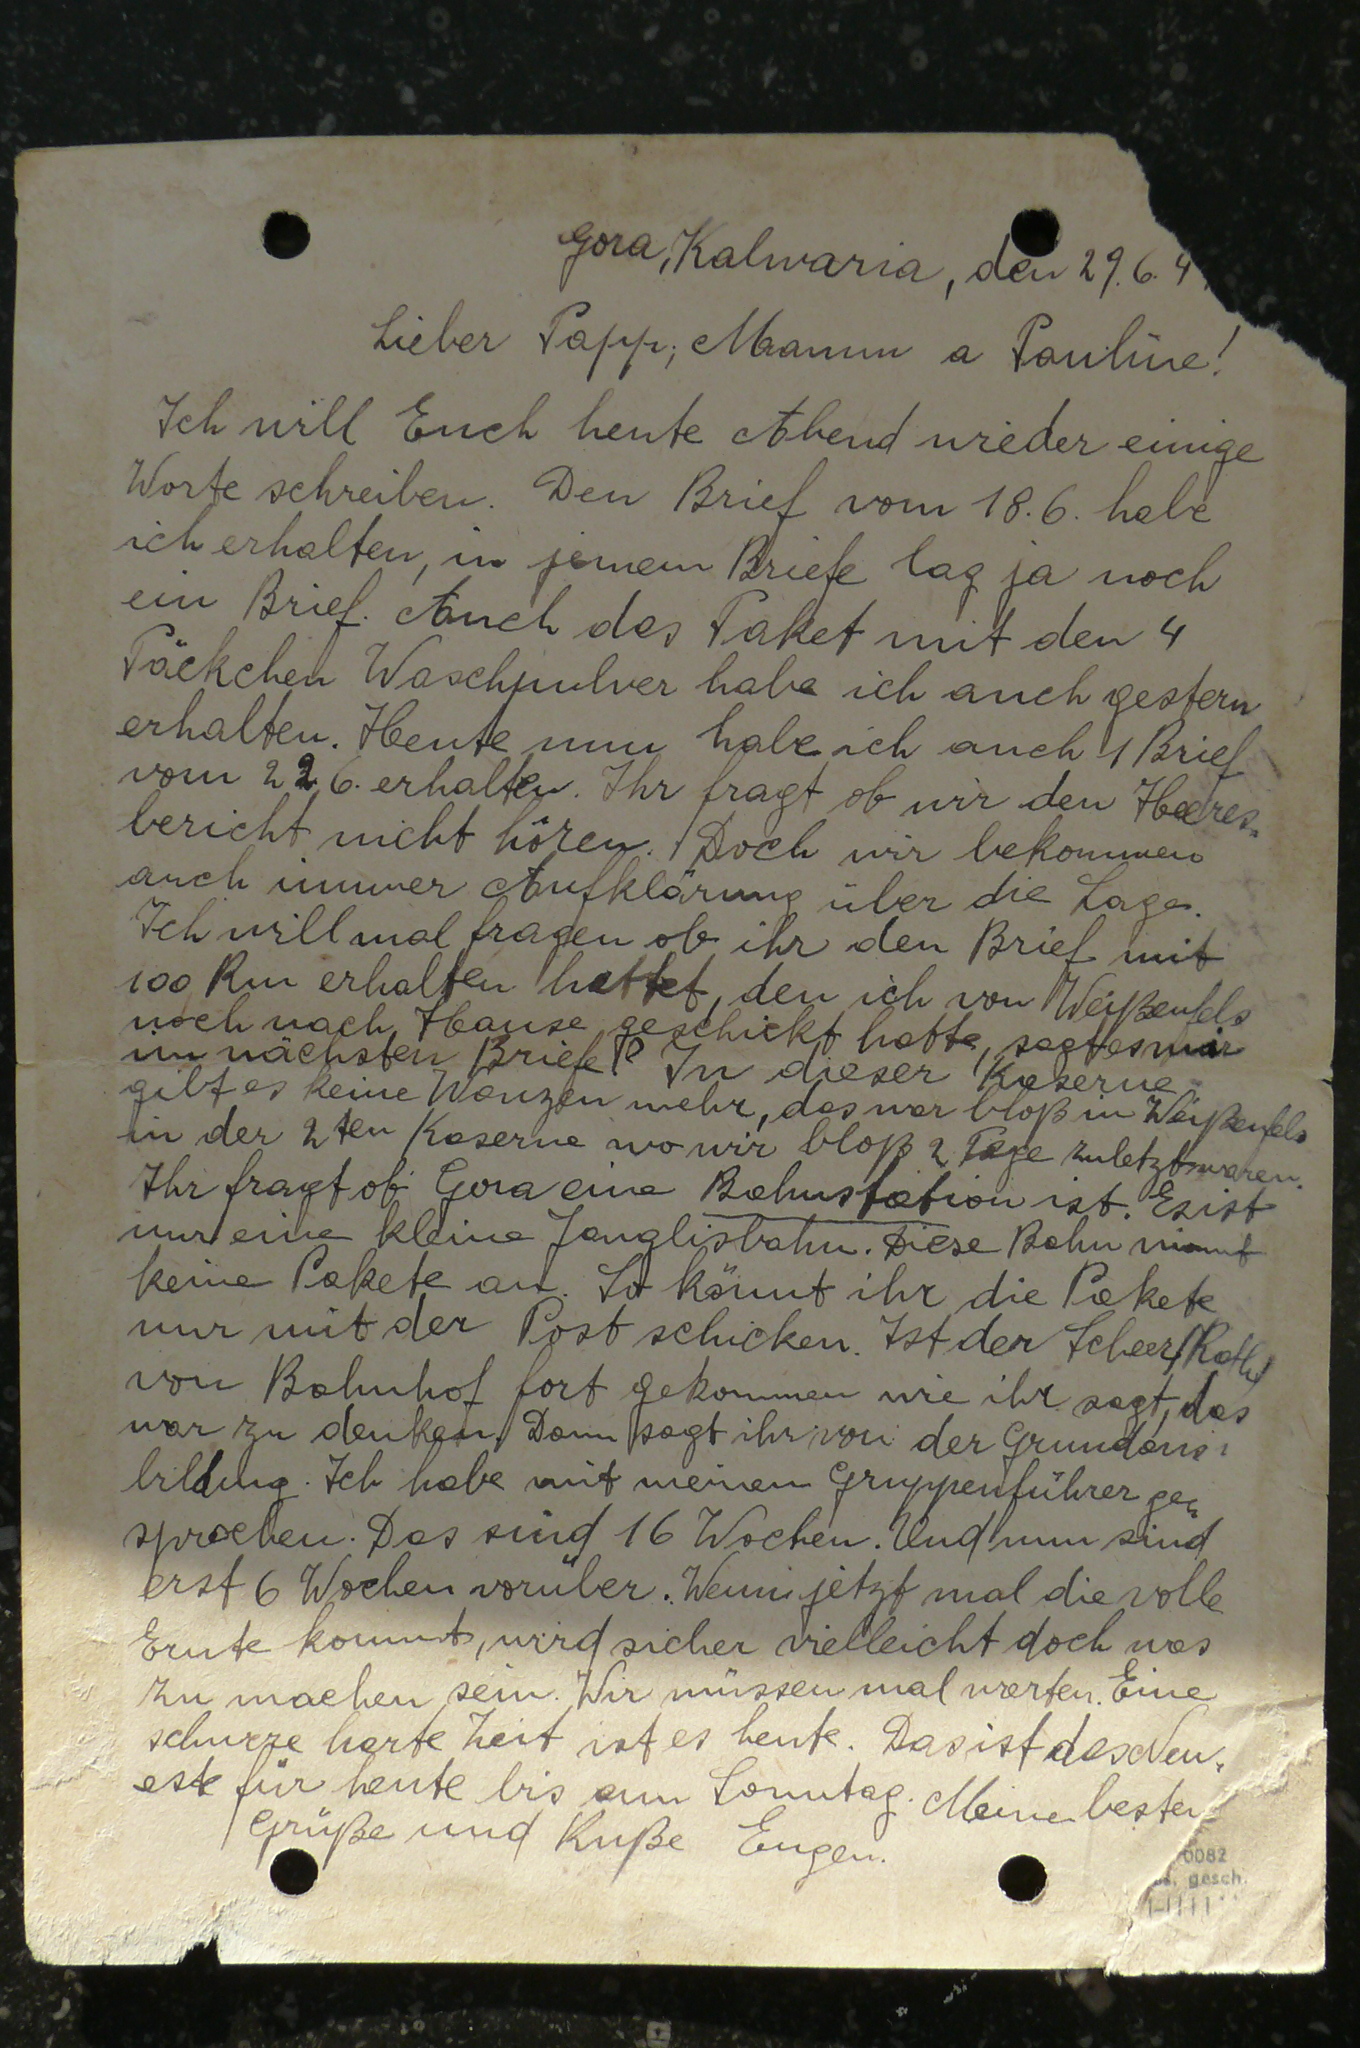 Gora, Kalwaria, den 29.6.4
Lieber Papp, Mamm a Pauline!
Ich will Euch heute Abend wieder einige
Worte schreiben. Den Brief vom 18.6. habe
ich erhalten, in jenem Briefe lag ja noch
ein Brief. Auch das Paket mit den 4
Päckchen Waschpulver habe ich auch gestern
erhalten. Heute nun habe ich auch 1 Brief
vom 22.6. erhalten. Ihr fragt ob wir den Heeres-
bericht nicht hören. Doch wir bekommen
auch immer Aufklärung über die Lage.
Ich will mal fragen ob ihr den Brief mit
100 Rm erhalten hattet, den ich von Weißenfels
noch nach Hause geschickt hatte, sagt es mir
im nächsten Briefe? In dieser Kaserne
gibt es keine Wanzen mehr, das war bloß in Weißenfels
in der 2ten Kaserne wo wir bloß 2 Tage zuletzt waren.
Ihr fragt ob Gora eine Bahnstation ist. Es ist
nur eine kleine Janglisbahn. Diese Bahn nimmt
keine Pakete an. So könnt ihr die Pakete
nur mit der Post schicken. Ist der
von Bahnhof fort gekommen wie ihr sagt, das
war zu denken. Dann sagt ihr von der Grundaus-
bildung. Ich habe mit meinem Gruppenführer ge-
sprochen. Das sind 16 Wochen. Und nun sind
erst 6 Wochen vorüber. Wenn jetzt mal die volle
Ernte kommt, wird sicher vielleicht doch was
zu machen sein. Wir müssen mal warten. Eine
schwere harte Zeit ist es heute. Das ist das Neu-
este für heute bis am Sonntag. Meine besten
Grüße und Kuße Eugen.
0082
gesch.